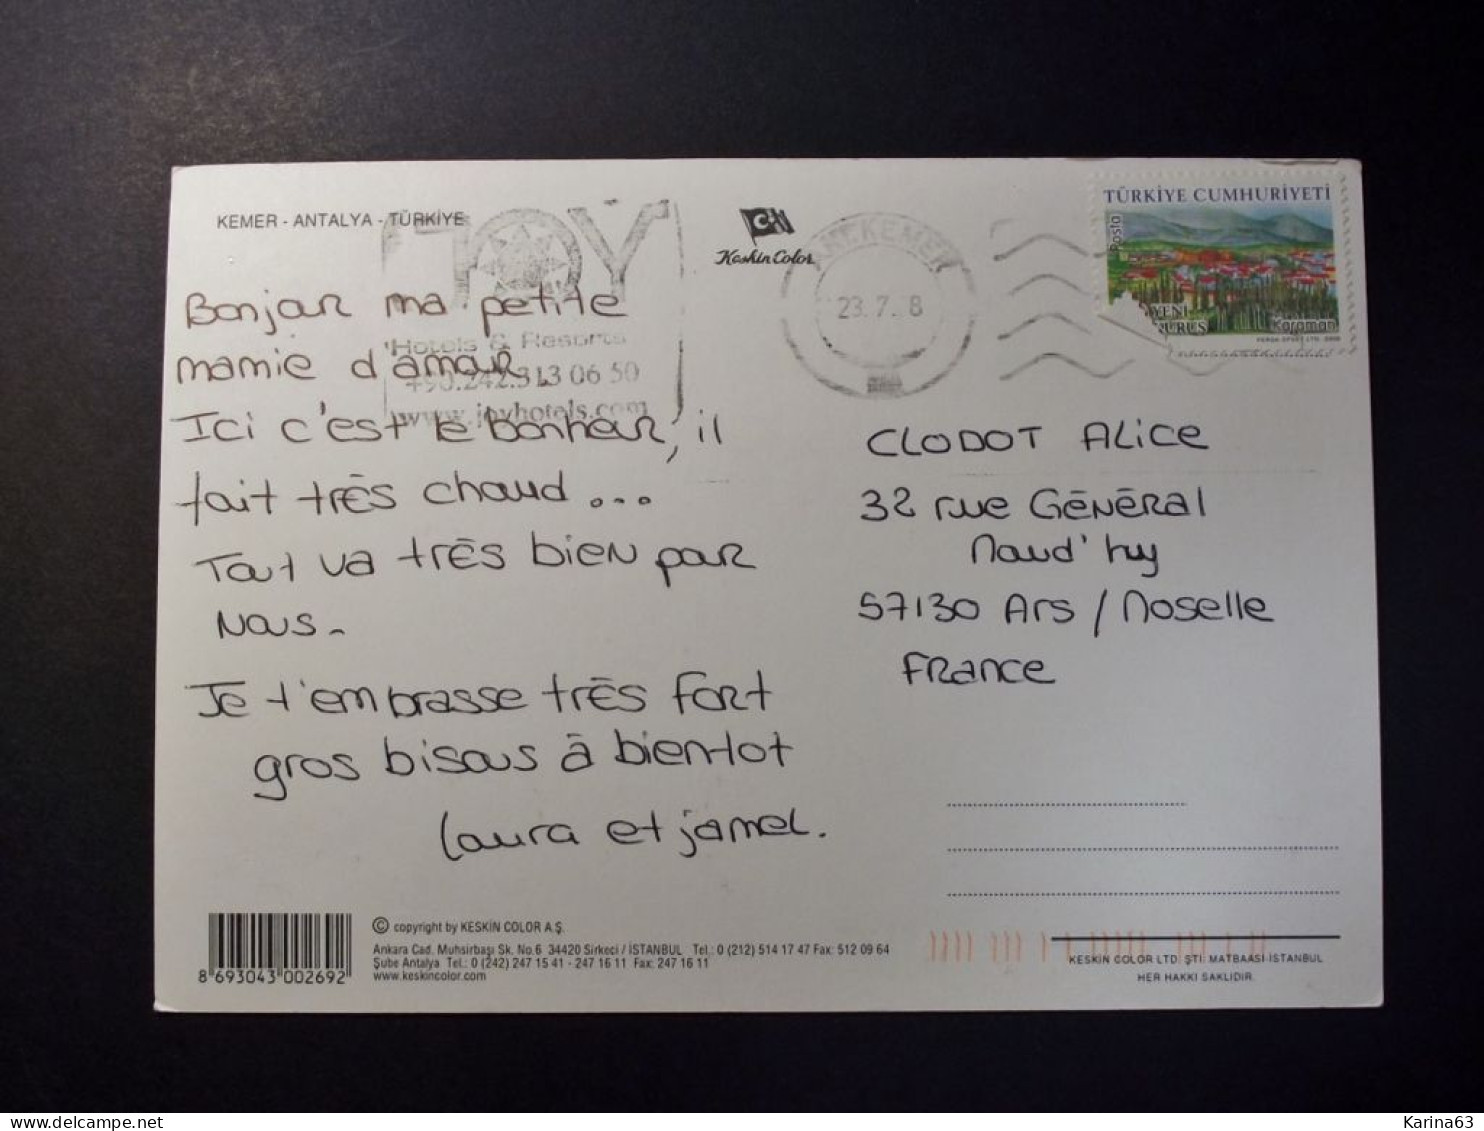 KEMER - ANTALYA - TÜRKİYE
JOY
Hotels & Resorts
+90.242.313 06 50
www.joyhotels.com
Keskin Color
KEMER
23.7. 8
TÜRKİYE CUMHURİYETİ
Posta
YENİ
KURUŞ
Karaman
Bonjour ma petite
mamie d'amour.
Ici c'est le bonheur, il
fait très chaud...
Tout va très bien pour
nous.
Je t'embrasse très fort
gros bisous à bientot
Laura et jamel.
CLODOT Alice
32 rue Général
Maud'huy
57130 Ars / Moselle
France
8 693043 002692
© copyright by KESKİN COLOR A.Ş.
Ankara Cad. Muhsirbaşı Sk. No.6 34420 Sirkeci / İSTANBUL Tel.: 0 (212) 514 17 47 Fax: 512 09 64
Şube Antalya Tel.: 0 (242) 247 15 41 - 247 16 11 Fax: 247 16 11
www.keskincolor.com
KESKİN COLOR LTD. ŞTİ. MATBAASI-İSTANBUL
HER HAKKI SAKLIDIR.
Karina63